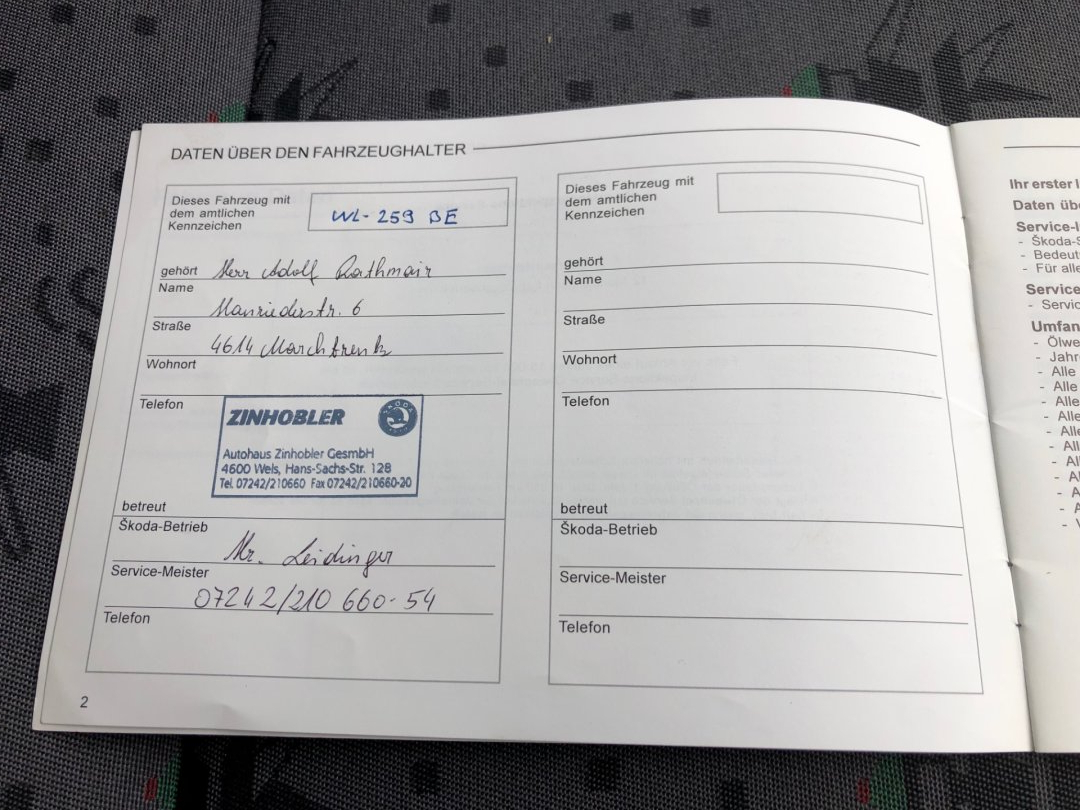 DATEN ÜBER DEN FAHRZEUGHALTER
Dieses Fahrzeug mit
dem amtlichen
Kennzeichen
WL-259 BE
gehört Herr Adolf Rathmair
Name
6
Straße
4614 Marchtrenk
Wohnort
Telefon
ZINHOBLER
SKODA
Autohaus Zinhobler GesmbH
4600 Wels, Hans-Sachs-Str. 128
Tel. 07242/210660 Fax 07242/210660-20
betreut
Škoda-Betrieb
Hr. Leidinger
Service-Meister
07242/210 660-54
Telefon
2
Dieses Fahrzeug mit
dem amtlichen
Kennzeichen
gehört
Name
Straße
Wohnort
Telefon
betreut
Škoda-Betrieb
Service-Meister
Telefon
Ihr erster
Daten übe
Service-I
- Škoda-S
- Bedeut
- Für alle
Service
- Servic
Umfan
- Ölwe
- Jahr
- Alle
- Alle
- Alle
- Alle
- Alle
- All
- Al
- Al
- A
- A
- V